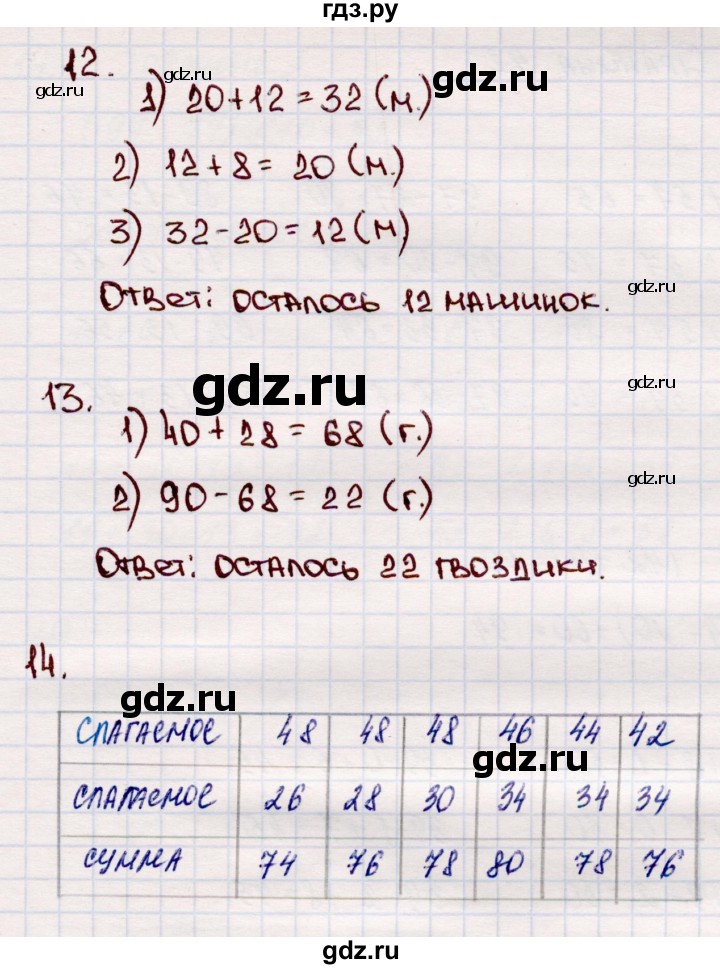 гдз.ру
12.
gdz.ru gdz.ru gdz.ru
1) 20+12=32 (м.)
2) 12+8=20 (м.)
3) 32-20=12 (м)
Ответ: осталось 12 машинок.
gdz.ru
gdz.ru
gdz.ru
13.
1) 40+28=68 (г.)
2) 90-68=22 (г.)
gdz.ru
gdz.ru
Ответ: осталось 22 гвоздики.
14.
gdz.ru
Слагаемое 48 48 48 46 44 42
gdz.ru
Слагаемое 26 28 30 34 34 34
Сумма 74 76 78 80 78 76
gdz.ru